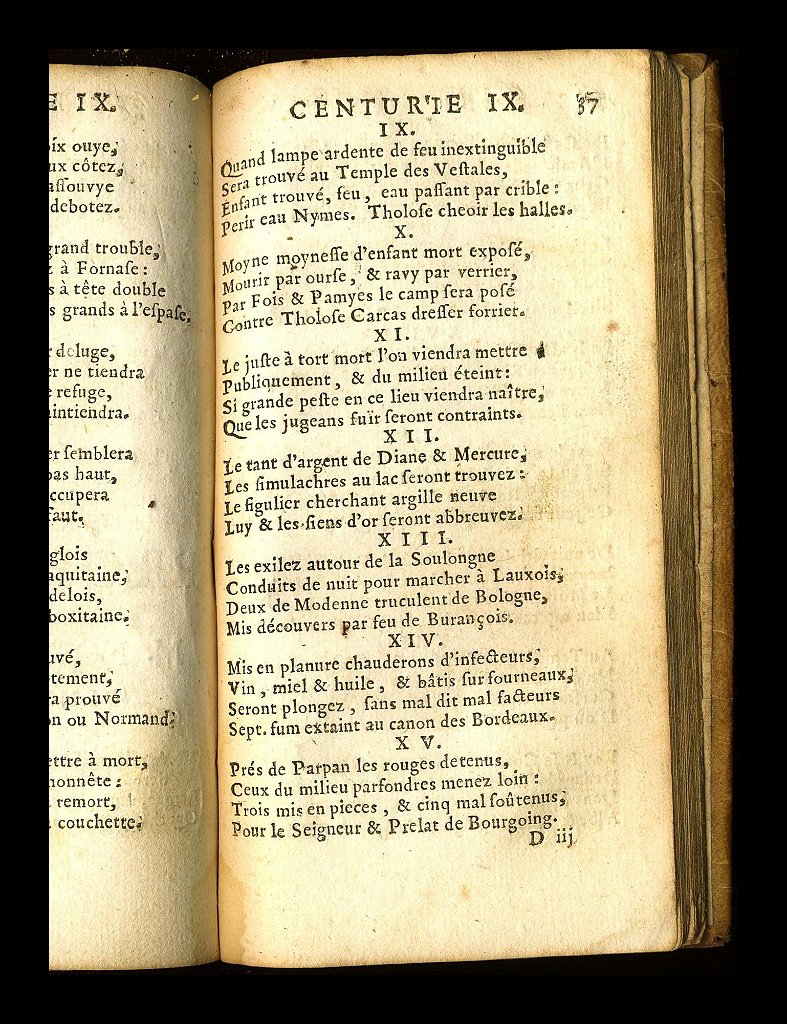 E IX.
oix ouye,
ux côtez,
assouvye
debotez.
grand trouble,
à Fornase :
s à tête double
s grands à l'espase.
deluge,
er ne tiendra
refuge,
aintiendra.
er semblera
pas haut,
ccupera
faut.
glois
aquitaine,
delois,
boxitaine.
uvé,
tement,
ra prouvé
on ou Normand.
ettre à mort,
honnête :
remort,
couchette.
CENTURIE IX. 37
IX.
Quand lampe ardente de feu inextinguible
Sera trouvé au Temple des Vestales,
Enfant trouvé, feu, eau passant par crible :
Perir eau Nymes. Tholose cheoir les halles.
X.
Moyne moynesse d'enfant mort exposé,
Mourir par ourse, & ravy par verrier,
Par Fois & Pamyes le camp sera posé
Contre Tholose Carcas dresser forrier.
XI.
Le juste à tort mort l'on viendra mettre
Publiquement, & du milieu éteint :
Si grande peste en ce lieu viendra naître,
Que les jugeans fuïr seront contraints.
XII.
Le tant d'argent de Diane & Mercure,
Les simulachres au lac seront trouvez :
Le figulier cherchant argille neuve
Luy & les siens d'or seront abbreuvez.
XIII.
Les exilez autour de la Soulongne
Conduits de nuit pour marcher à Lauxois,
Deux de Modenne truculent de Bologne,
Mis découvers par feu de Burançois.
XIV.
Mis en planure chauderons d'infecteurs,
Vin, miel & huile, & bâtis sur fourneaux,
Seront plongez, sans mal dit mal facteurs
Sept. fum extaint au canon des Bordeaux.
XV.
Prés de Parpan les rouges detenus,
Ceux du milieu parfondres menez loin :
Trois mis en pieces, & cinq mal soûtenus,
Pour le Seigneur & Prelat de Bourgoing.
D iij